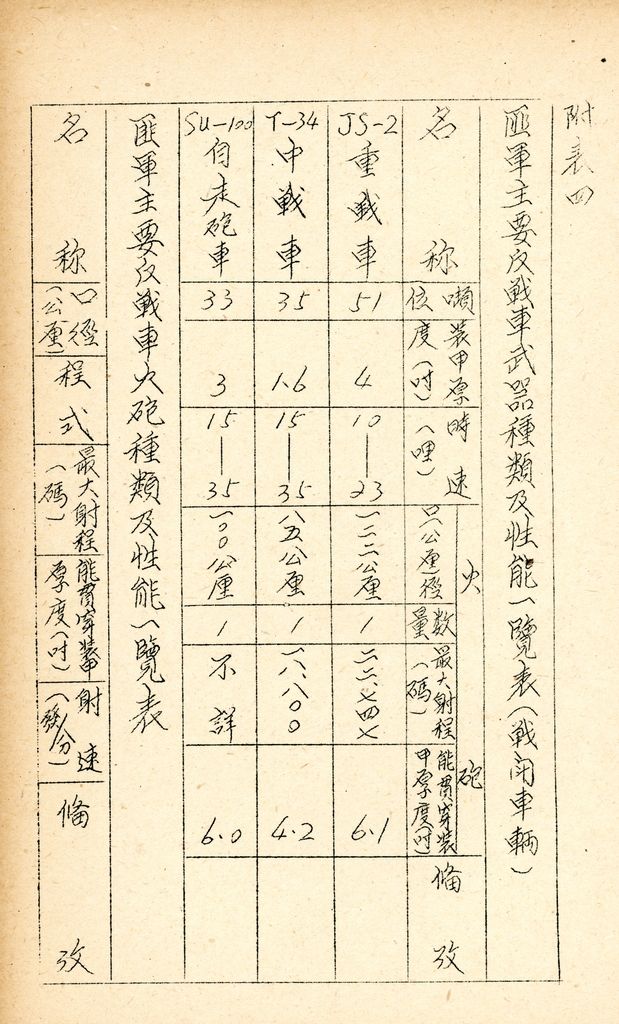 附表四
匪軍主要反戰車武器種類及性能一覽表(戰鬥車輛)
名 称
噸位
裝甲厚度(吋)
時速(哩)
火砲
口徑(公厘)
数量
最大射程(碼)
能貫穿裝甲厚度(吋)
備攷
JS-2重戰車
51
4
10—23
一二二公厘
1
二二、七四七
6.1
T-34中戰車
35
1.6
15—35
八五公厘
1
一八、八〇〇
4.2
SU-100自走砲車
33
3
15—35
一〇〇公厘
1
不詳
6.0
匪軍主要反戰車火砲種類及性能一覽表
名 称
口徑(公厘)
程式
最大射程(碼)
能貫穿裝甲厚度(吋)
射速(發/分)
備攷